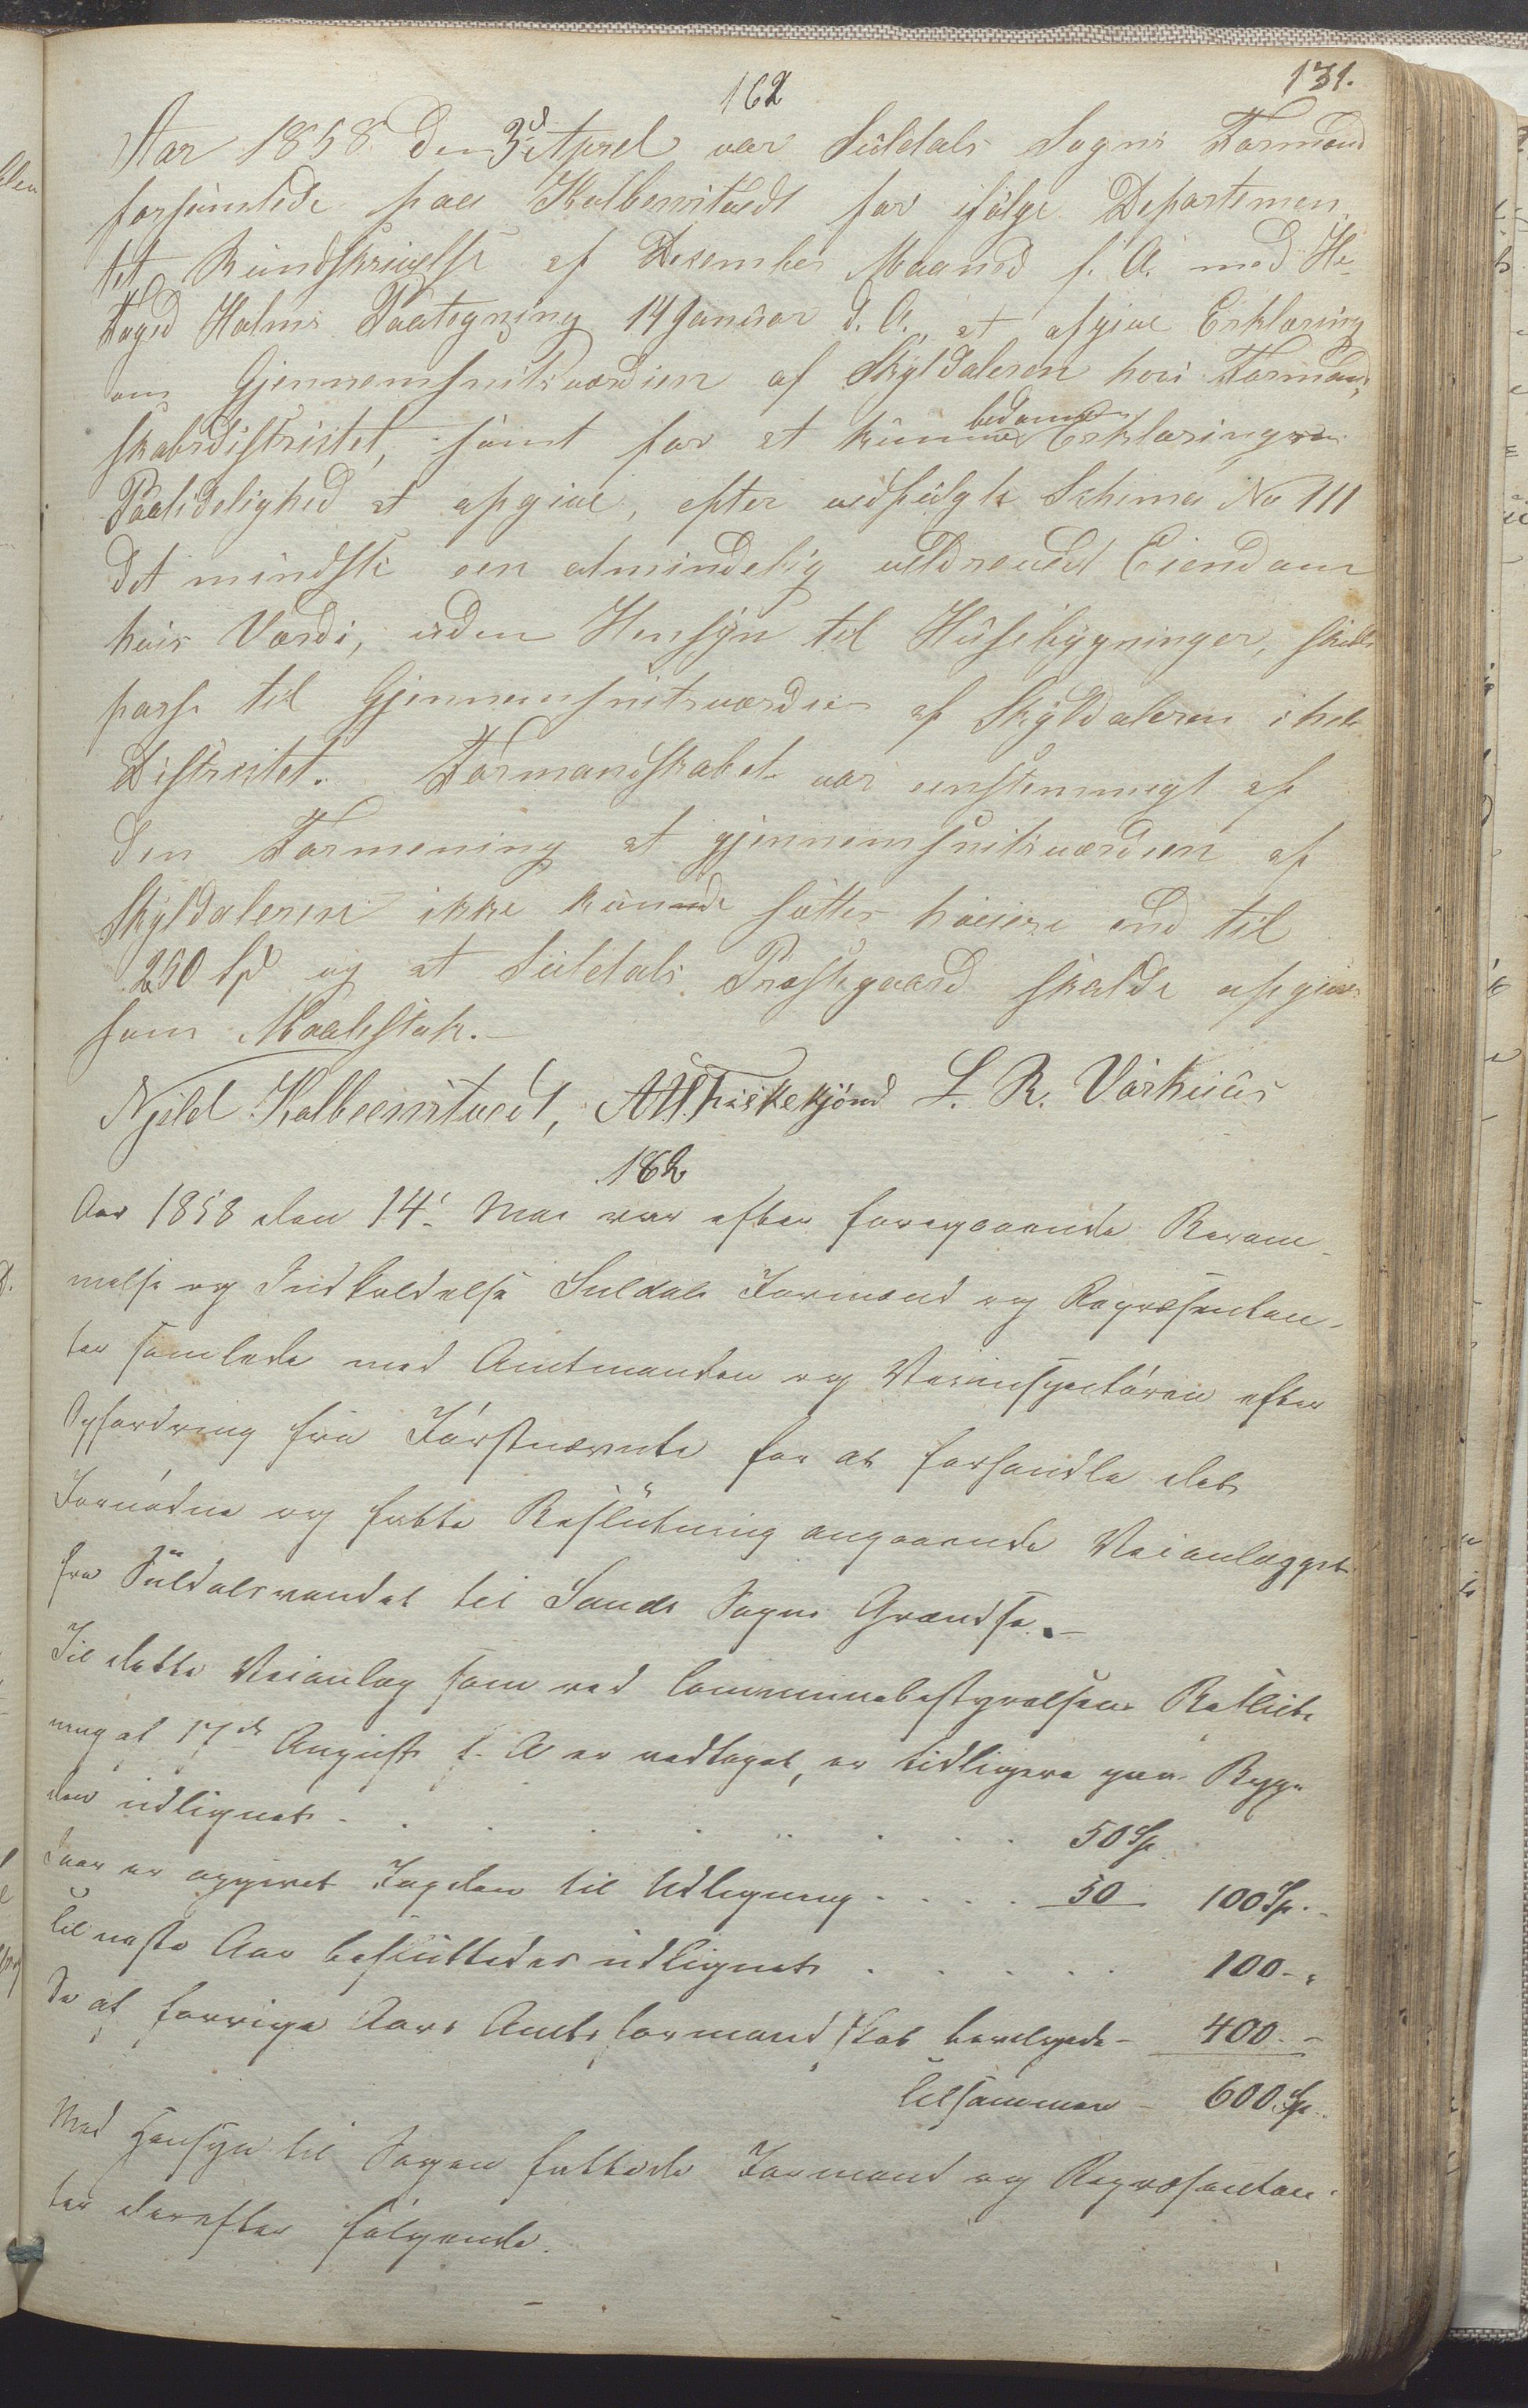 131.
162
Aar 1858 den 3d April var Suldals Sogns Formænd
forsamlede paa Kolbeenstvedt for ifølge Departemen
tet Rundskrivelse af Desember Maaned f. A. med He.
foged Holms Paategning 14 Januar d. A. at afgive Erklæring
om Gjennemsnitsværdien af Skylddaleren hori Formand,
skabsdistriktet, samt for at kunne bedømme Erklæringens
Paalidelighed at opgive, efter vedfulgte Schema No III
det mindste een almindelig veldrevet Eiendom
hvis Værdi, uden Hensyn til Husebygninger, skulde
passe til Gjennemsnitsværdien af Skylddaleren i hele
Districtet. Formandskabet var eenstemmigt af
den Formening at gjennemsnitsværdien af
Skylddaleren ikke kunde sættes høiere end til
250 Spd og at Suldals Præstegaard skulde opgives
som Maalestok.-
Njeld Kolbeenstvedt, L. R. Vårhuus
162
Aar 1858 den 14. Mai var efter foregaaende Beram-
melse og Indkaldelse Suldals Formænd og Repræsentan-
ter samlede med Amtmanden og Veiinspectøren efter
Opfordring fra Førstnævnte for at forhandle det
Fornødne og fatte Beslutning angaaende Veianlægget
fra Suldalsvandet til Sands Sogns Grændse.-
Til dette Veianlæg som ved Communebestyrelsens Beslut
ning af 17de August f. A er vedtaget, er tidligere paa Byg
den udlignet . . . . . . . . 50 Sp
Iaar er opgivet Fogden til Udligning . . . . 50 100 Sp. -
til næste Aar besluttedes udlignet . . . . . 100 - "
De af forrige Aars Amtsformandskab bevilgede - 400. -
tilsammen - 600 Sp.
Med Hensyn til Sagen fattede Formænd og Repræsentan-
ter derefter følgende.